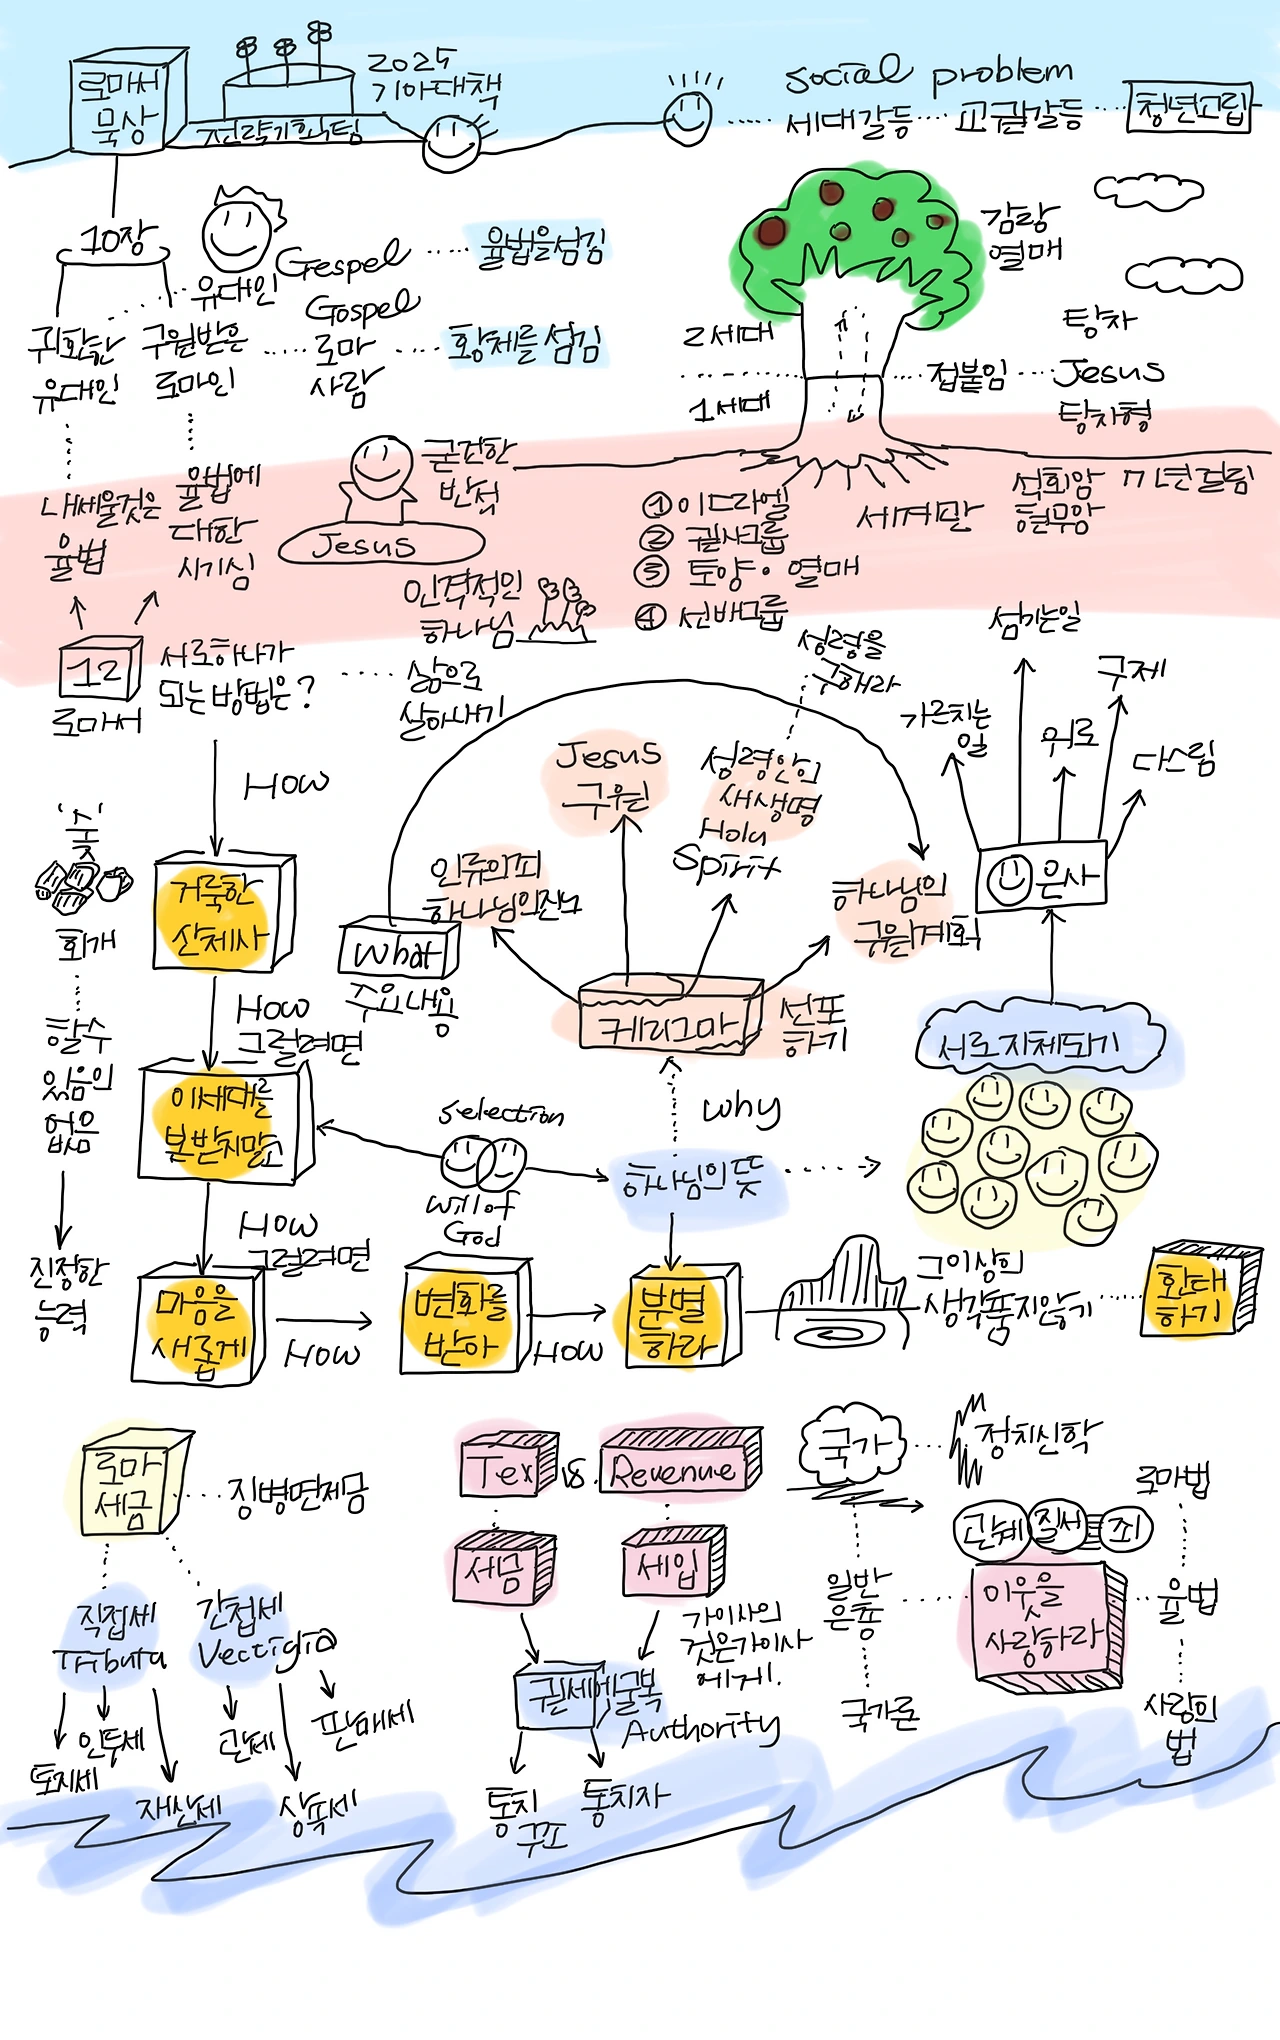 로마서
묵상
전략기획팀
2025
기아대책
social problem
세대갈등
교권갈등
청년고립
10장
유대인
Gespel
율법을섬김
Gospel
귀환한
유대인
구원받은
로마인
로마
사람
황제를 섬김
감람
열매
2세대
1세대
접붙임
탕자
Jesus
탕자형
내세울것은
율법
율법에
대한
시기심
굳건한
반석
Jesus
① 이스라엘
②
③ 토양·열매
④ 선배그룹
세계관
석회암
현무암
인격적인
하나님
12
로마서
서로하나가
되는방법은?
삶으로
살아내기
How
Jesus
구원
성령을
구해라
성령안의
새생명
Holy
Spirit
인류의죄
하나님의진노
하나님의
구원계획
What
주요내용
케리그마
선포
하기
가르치는
일
섬기는일
위로
구제
다스림
은사
서로지체되기
'숯'
회개
할수
있음의
없음
진정한
능력
거룩한
산제사
How
그럴려면
이세대를
본받지말고
selection
will of
God
why
하나님의 뜻
How
그럴려면
마음을
새롭게
How
변화를
받아
How
분별
하라
그이상의
생각품지않기
환대
하기
로마
세금
징병면제금
직접세
Tributa
간접세
Vectigia
토지세
인두세
재산세
관세
상속세
판매세
Tex
vs.
Revenue
세금
세입
가이사의
것은가이사
에게.
권세에굴복
Authority
통치
구조
통치자
국가
정치신학
일반
은총
국가론
권세
질서
죄
이웃을
사랑하라
로마법
율법
사랑의
법